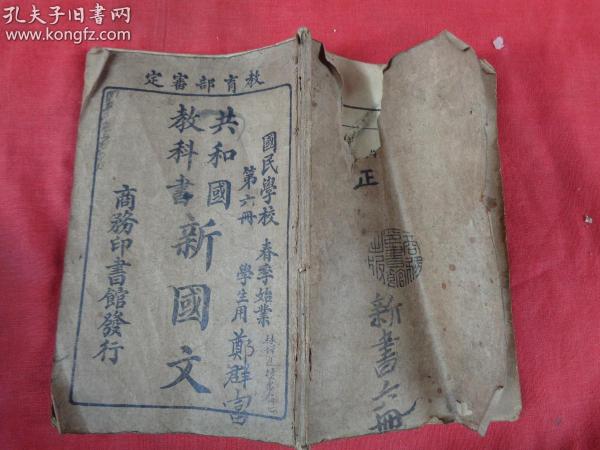 孔夫子旧书网
www.kongfz.com
教育部審定
國民學校 春季始業
第六冊 學生用
鄭群富
共和國
教科書
新國文
商務印書館發行
正
新書六冊